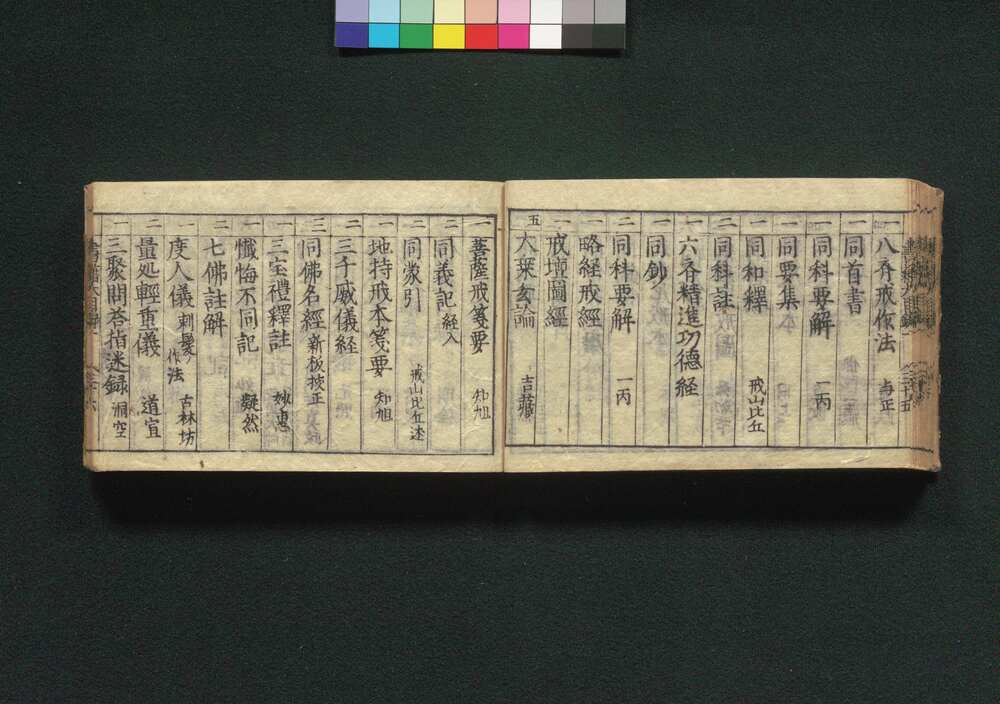 一 八斉戒作法 与正
一 同首書
一 同科要解 一丙
一 同要集
一 同和釋 戒山比丘
二 同科註
一 六斉精進功徳経
一 同鈔
二 同科要解 一丙
一 略経戒経
一 戒壇圖經
五 大乗玄論 吉蔵
一 菩薩戒箋要 知旭
二 同義記 経入
二 同蒙引 戒山比丘述
一 地持戒本箋要 知旭
二 三千威儀経
三 同佛名経 新板挍正
一 三宝禮釋註 妙恵
一 懺悔不同記 凝然
二 七佛註解
一 度人儀 剃髪作法 古林坊
二 量処輕重儀 道宣
一 三聚問荅指迷録 洞空